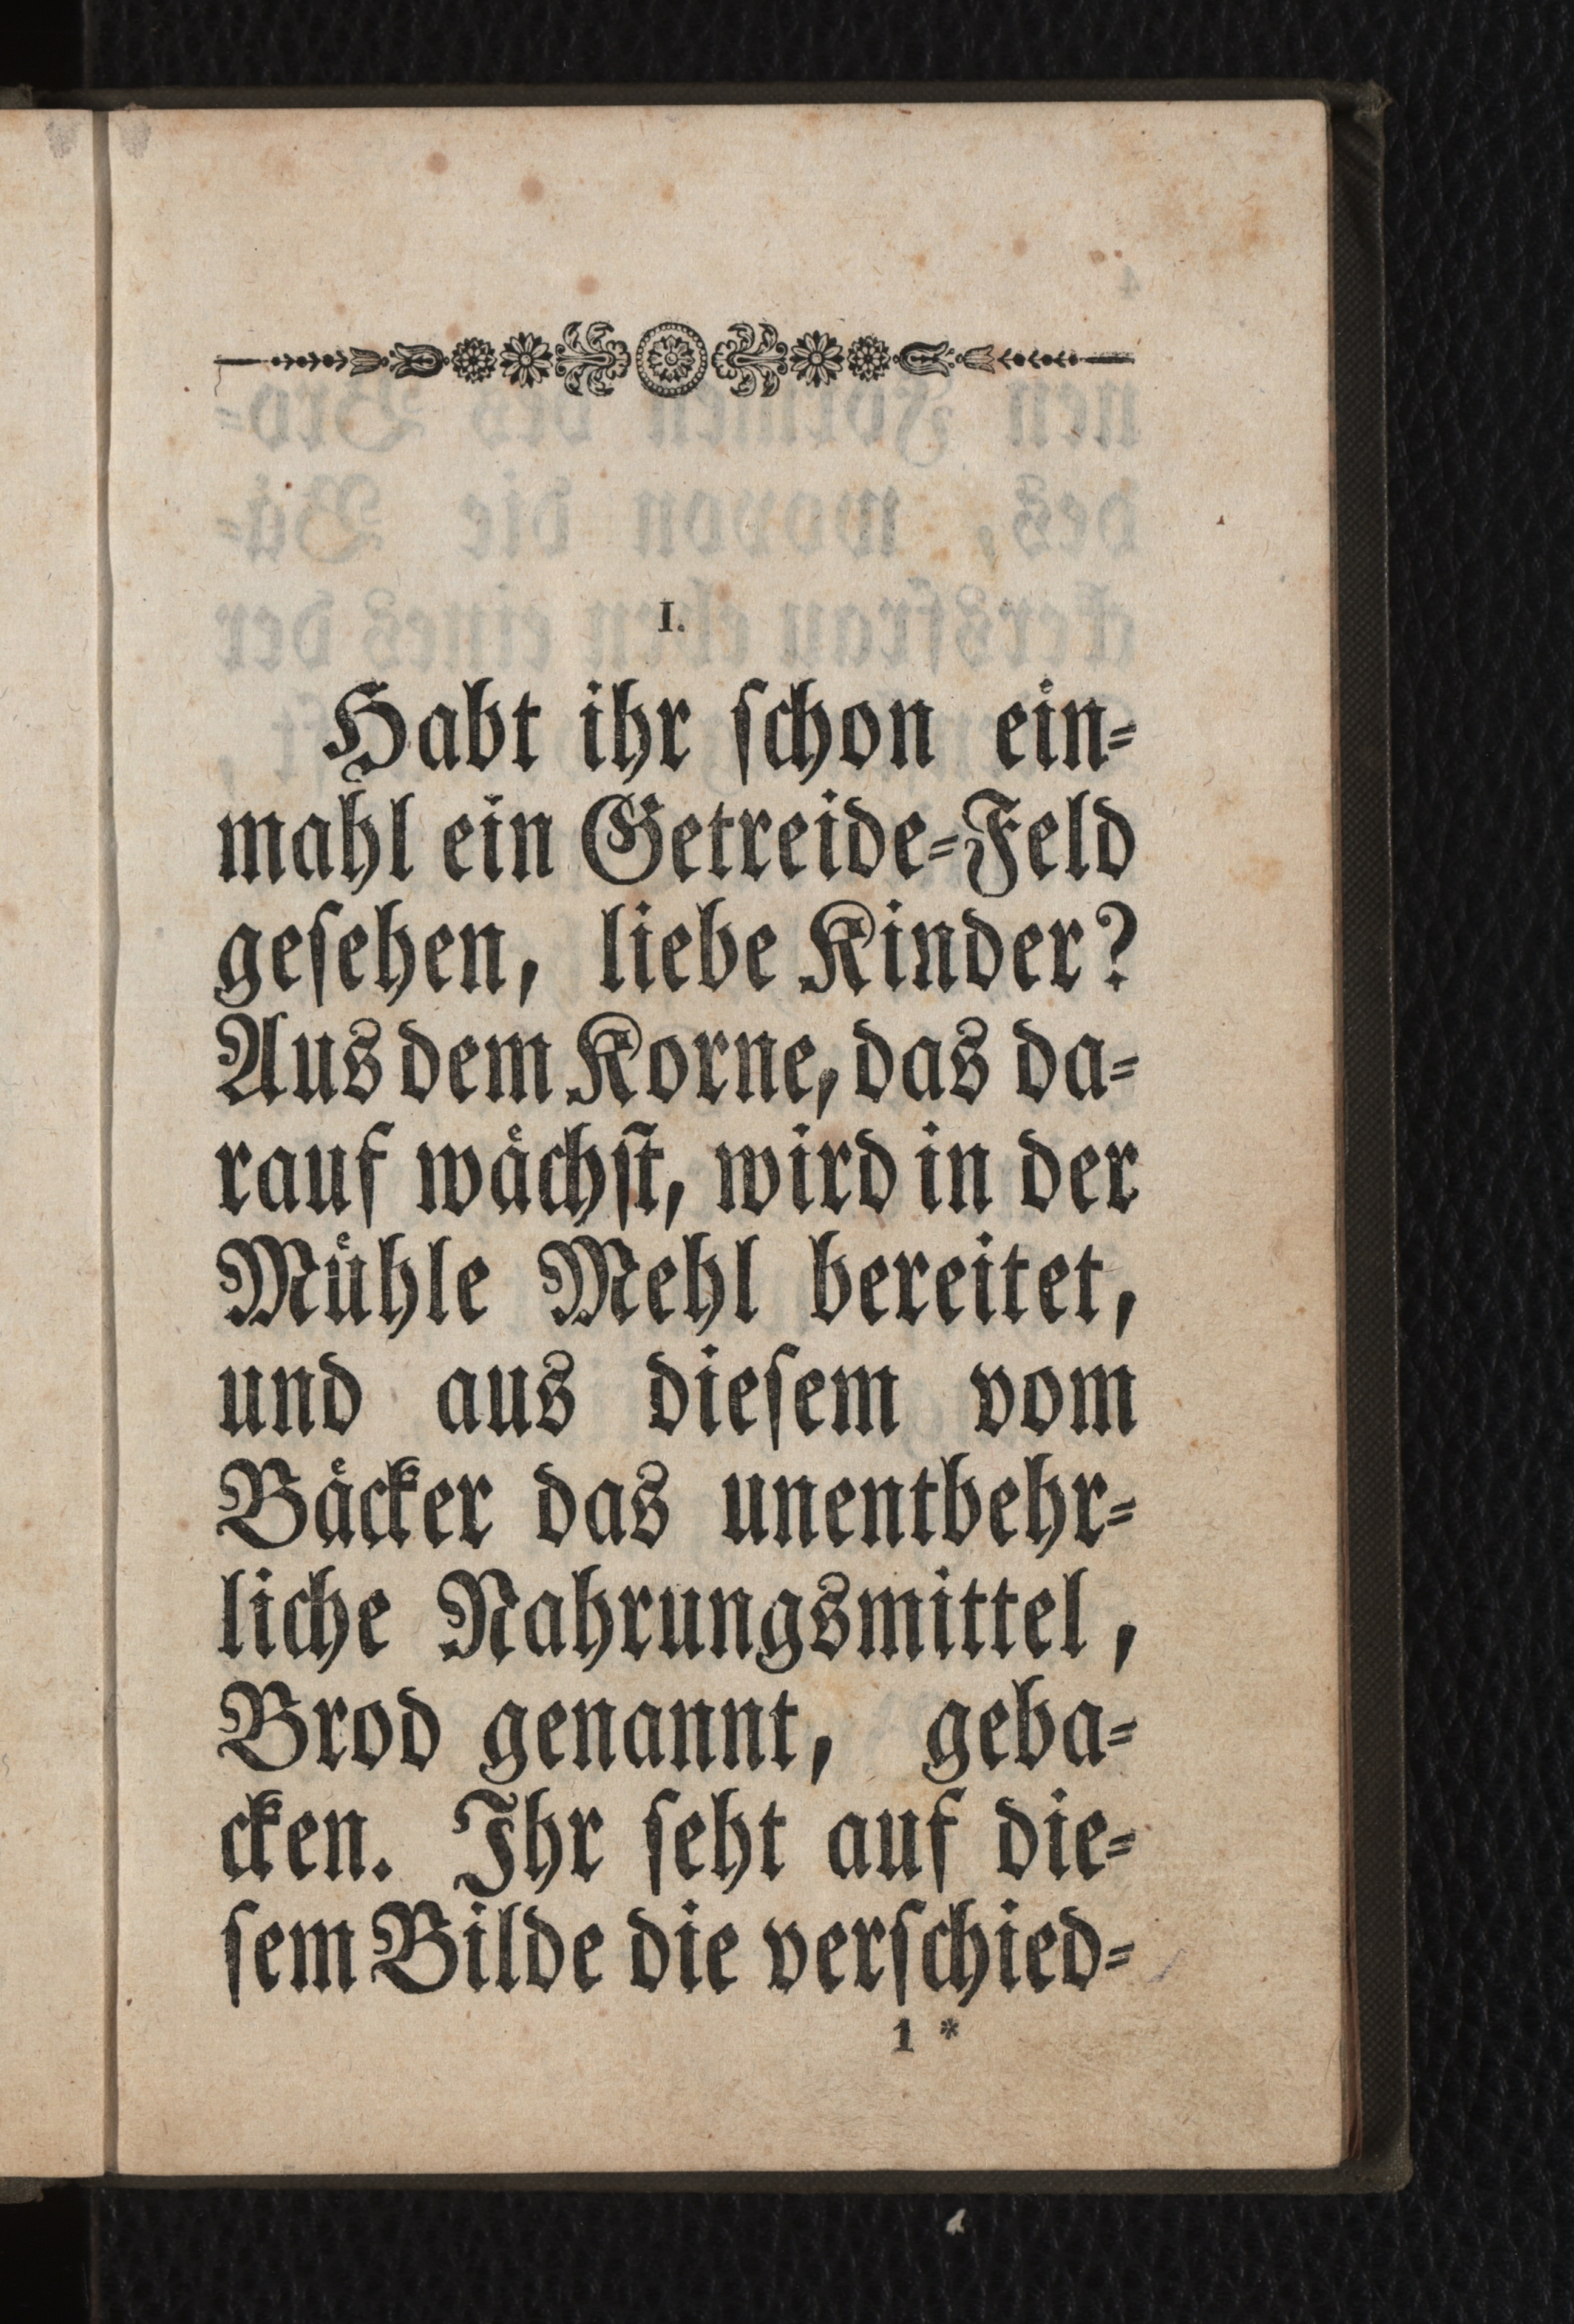 I.
Habt ihr ſchon ein⸗
mahl ein Getreide⸗Feld
geſehen, liebe Kinder?
Aus dem Korne, das da⸗
rauf waͤchſt, wird in der
Muͤhle Mehl bereitet,
und aus dieſem vom
Baͤcker das unentbehr⸗
liche Nahrungsmittel,
Brod genannt, geba⸗
cken. Ihr ſeht auf die⸗
ſem Bilde die verſchied⸗
1 *